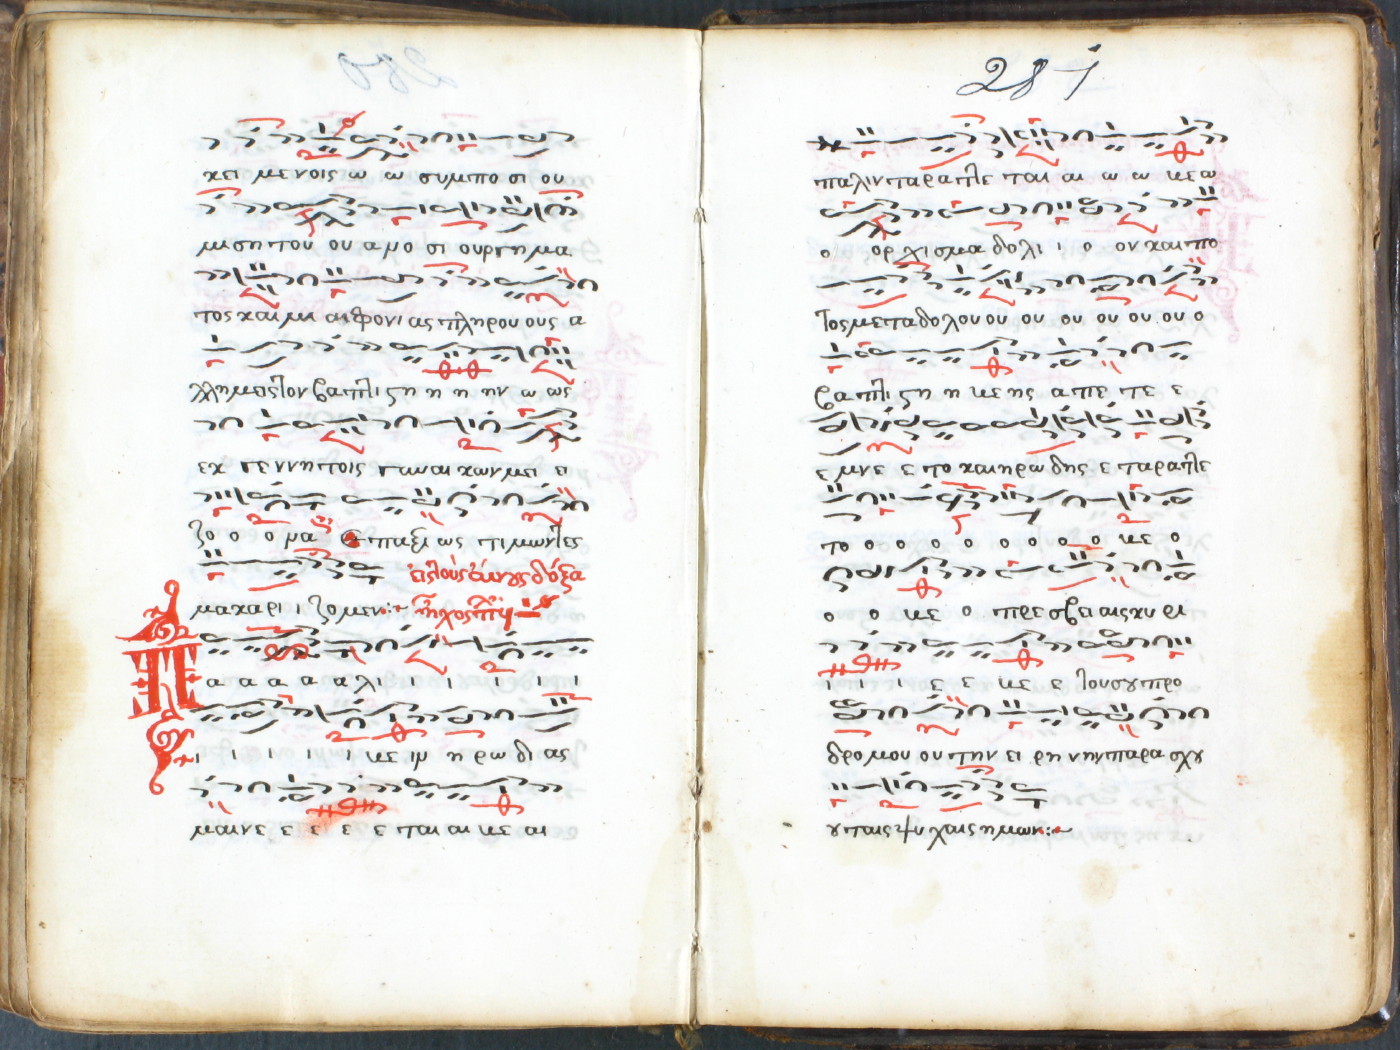 κει μενοις ω ω συμπο σι ου
μισητου ου α μο σι ουργημα
τος και μι αι φονι ας πληρου ους α
λλημεις τον βαπτι ςη η η ην ω ως
εκ γεννητοις γυναι κων μει ει
ζο ο ο να ε παξι ως τιμωντες
εις τους αινους δοξα
μακαρι ι ζομεν:~ ηχος πλ δ
Π α α α α α λι ι ι ι ι ι ι
ι ι ι ι ι νε ιμ η ρω δι ας
μαινε ε ε ε ε ται αι νε αι
281
παλιν ταρατ7ε ται αι ω ω νε ω
ο ορ χισμα δολι ι ο ον και πο
τος μετα δολου ου ου ου ου ου ου ο
βαπτι ςη η νε ης απε τε ε
ε μνε ε το και ηρω δης ε ταρατ7ε
το ο ο ο ο ο ο ο ο νε ο
ο ο νε ο πρεσβει αις κυ ρι
ι ι ε ε νε ε του σου προ
δρομου ου την ει ρη νην παρα σχου
ου ταις ψυ χαις ημων:~